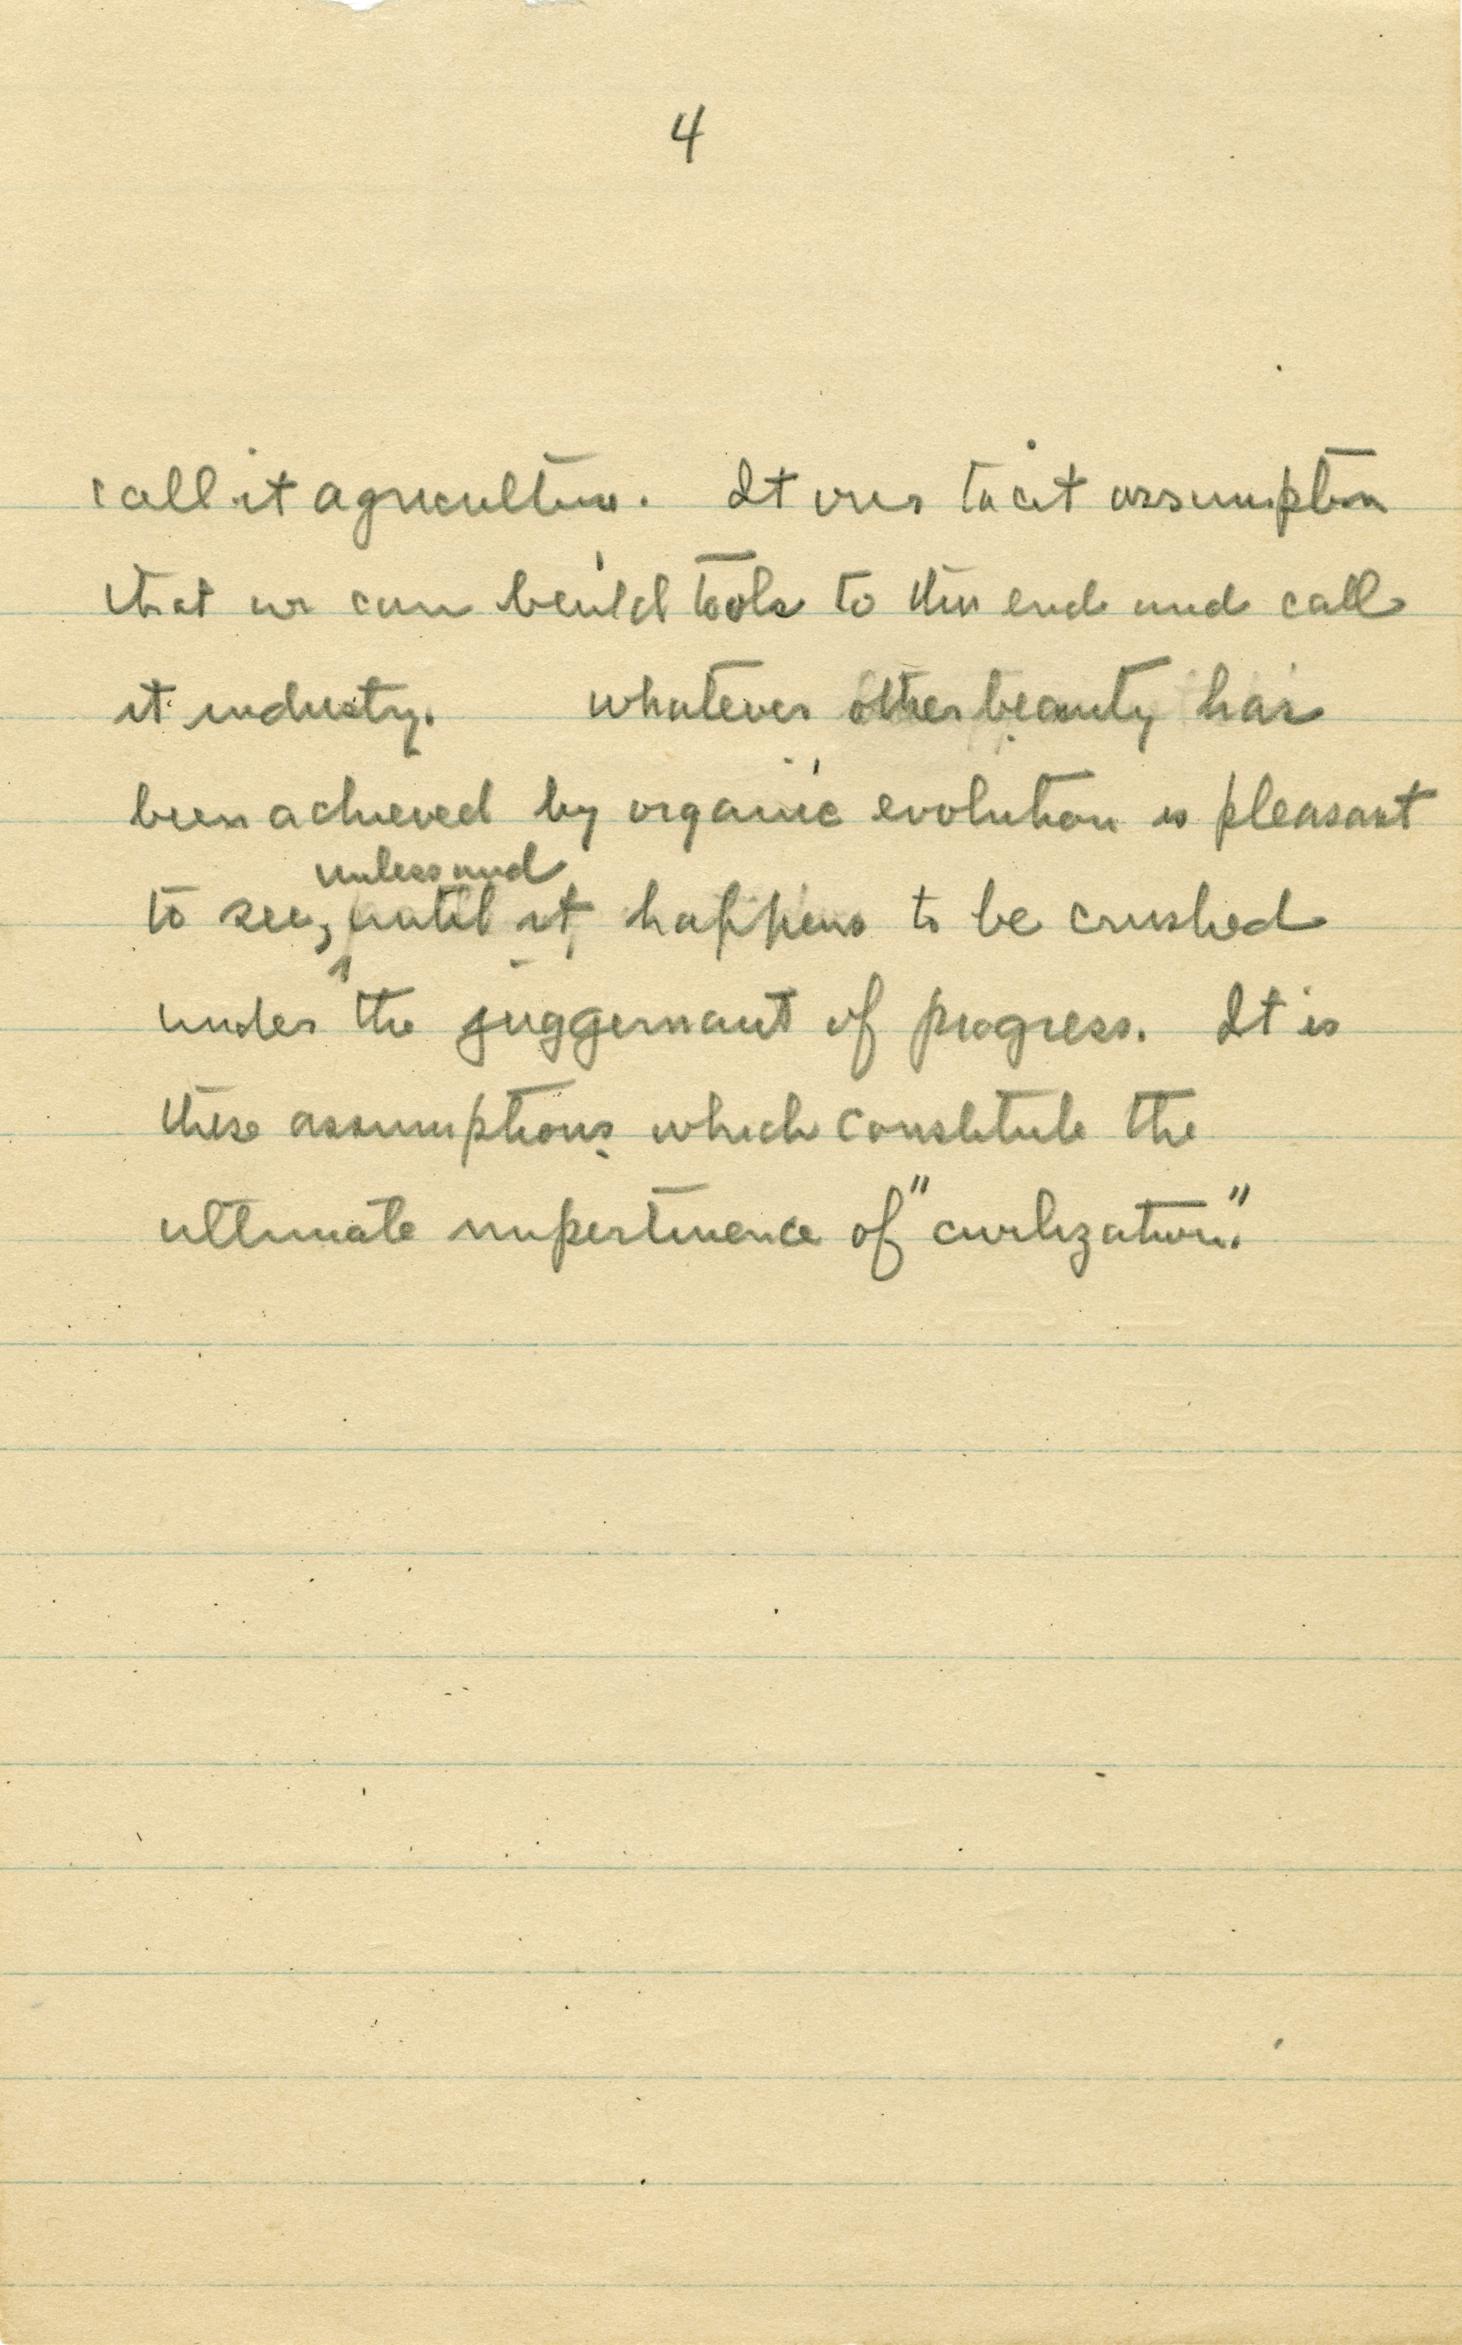 4
call it agriculture. It was tacit assumption
that we can build tools to this end and call
it industry. whatever other beauty has
been achieved by organic evolution is pleasant
unless and
to see, until it happens to be crushed
under the juggernaut of progress. It is
these assumptions which constitute the
ultimate impertinence of "civilization."